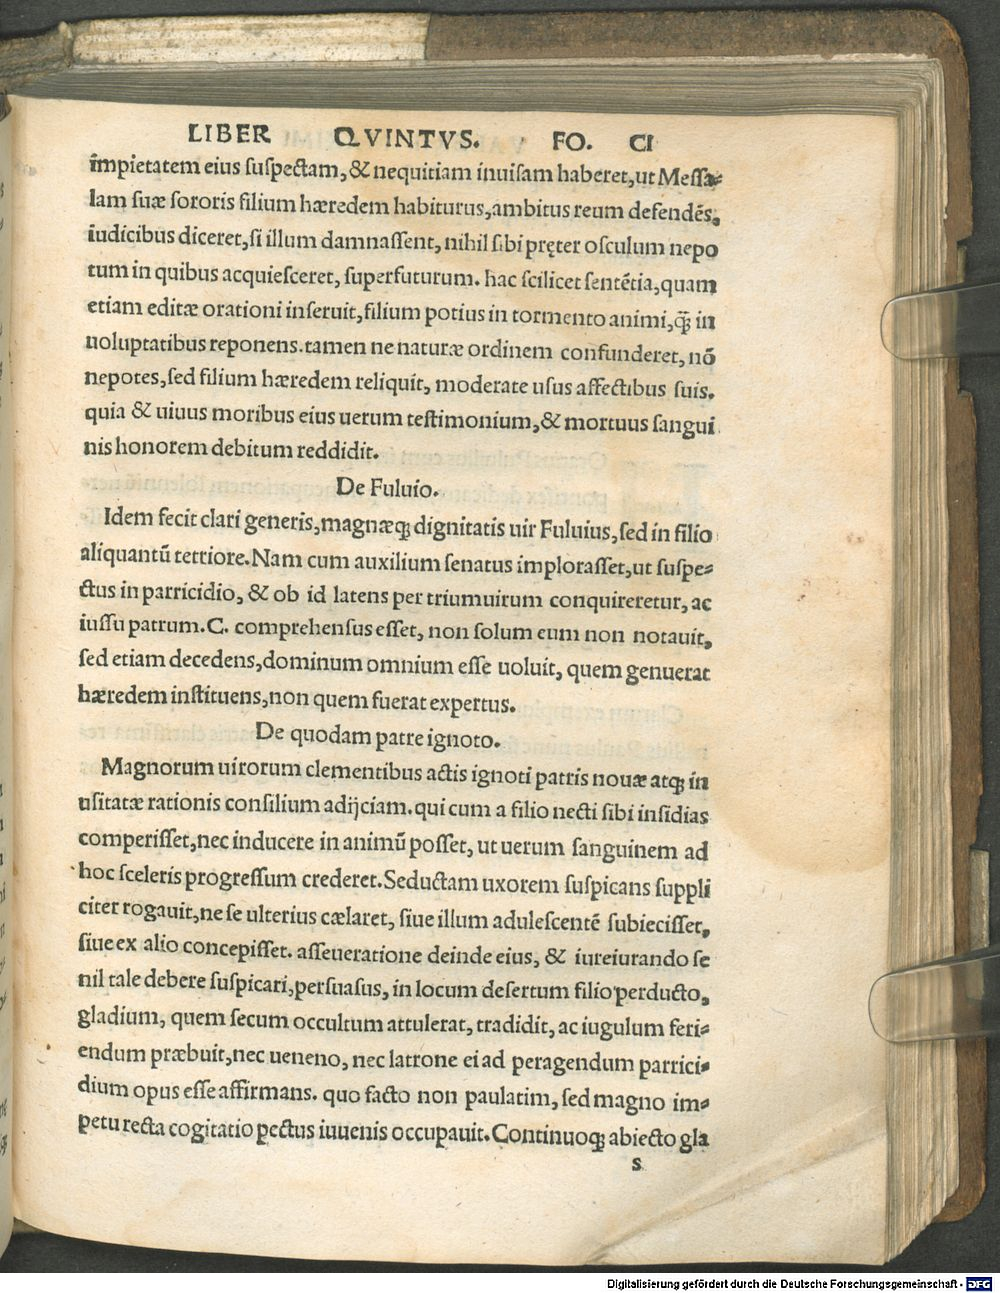 LIBER QVINTVS. FO. CI
impietatem eius suspectam, & nequitiam inuisam haberet, ut Messa⸗
lam suæ sororis filium hæredem habiturus, ambitus reum defendẽs,
iudicibus diceret, si illum damnassent, nihil sibi pręter osculum nepo
tum in quibus acquiesceret, superfuturum. hac scilicet sentẽtia, quam
etiam editæ orationi inseruit, filium potius in tormento animi, q̃ in
uoluptatibus reponens. tamen ne naturæ ordinem confunderet, nõ
nepotes, sed filium hæredem reliquit, moderate usus affectibus suis.
quia & uiuus moribus eius uerum testimonium, & mortuus sangui
nis honorem debitum reddidit.
De Fuluio.
Idem fecit clari generis, magnæq; dignitatis uir Fuluius, sed in filio
aliquantũ tetriore. Nam cum auxilium senatus implorasset, ut suspe⸗
ctus in parricidio, & ob id latens per triumuirum conquireretur, ac
iussu patrum. C. comprehensus esset, non solum eum non notauit,
sed etiam decedens, dominum omnium esse uoluit, quem genuerat
hæredem instituens, non quem fuerat expertus.
De quodam patre ignoto.
Magnorum uirorum clementibus actis ignoti patris nouæ atq; in
usitatæ rationis consilium adijciam. qui cum a filio necti sibi insidias
comperisset, nec inducere in animũ posset, ut uerum sanguinem ad
hoc sceleris progressum crederet. Seductam uxorem suspicans suppli
citer rogauit, ne se ulterius cælaret, siue illum adulescentẽ subiecisset,
siue ex alio concepisset. asseueratione deinde eius, & iureiurando se
nil tale debere suspicari, persuasus, in locum desertum filio perducto,
gladium, quem secum occultum attulerat, tradidit, ac iugulum feri⸗
endum præbuit, nec ueneno, nec latrone ei ad peragendum parrici⸗
dium opus esse affirmans. quo facto non paulatim, sed magno im⸗
petu recta cogitatio pectus iuuenis occupauit. Continuoq; abiecto gla
s
Digitalisierung gefördert durch die Deutsche Forschungsgemeinschaft - DFG